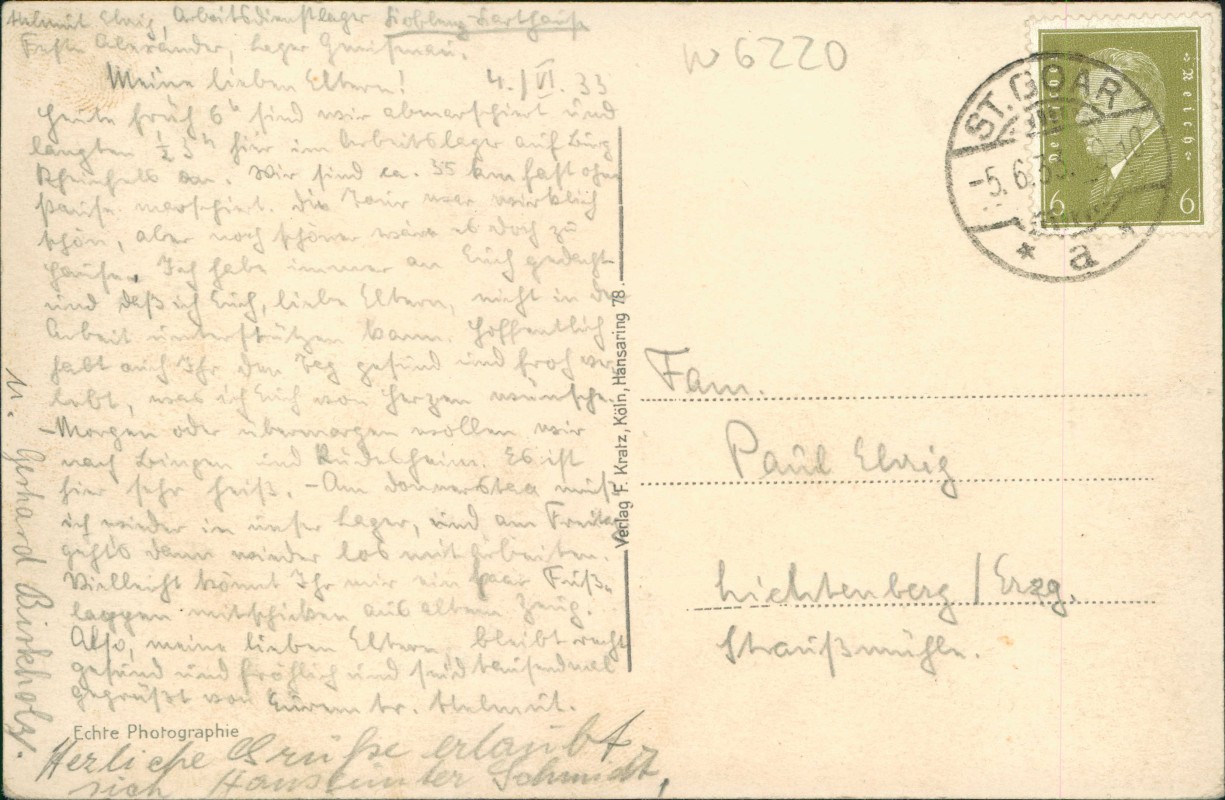 Helmut Elvig, Arbeitsdienstlager Koblenz-Karthause
Feste Alexander, Lager Gneisenau.
Meine lieben Eltern! 4./VI. 33
Heute früh 6h sind wir abmarschiert und
langten ½ 3h hier im Arbeitslager auf Burg
Rheinfels an. Wir sind ca. 35 km fast ohne
Pause marschiert. Die Tour war wirklich
schön, aber noch schöner wäre es doch zu
Hause. Ich habe immer an Euch gedacht
und daß ich Euch, liebe Eltern, nicht in der
Arbeit unterstützen kann. Hoffentlich
habt auch Ihr den Tag gesund und froh ver-
lebt, was ich Euch von Herzen wünsche.
-Morgen oder übermorgen wollen wir
nach Bingen und Rüdesheim. Es ist
hier sehr heiß. -Am Donnerstag muß
ich wieder in unser Lager, und am Freitag
gehts dann wieder los mit Arbeiten.
Vielleicht könnt Ihr mir ein paar Fuß-
lappen mitschicken aus altem Zeug.
Also, meine lieben Eltern, bleibt recht
gesund und fröhlich und seid tausendmal
gegrüßt von Eurem tr. Helmut.
Herliche Grüße erlaubt
sich Hansgünter Schmidt,
u. Gerhard Birkholz.
Echte Photographie
Verlag F. Kratz, Köln, Hansaring 78.
W 6220
ST. GOAR
-5.6.33.
* a *
Deutsches Reich
6 6
Fam.
Paul Elvig
Lichtenberg / Erzg.
Straußmühle.